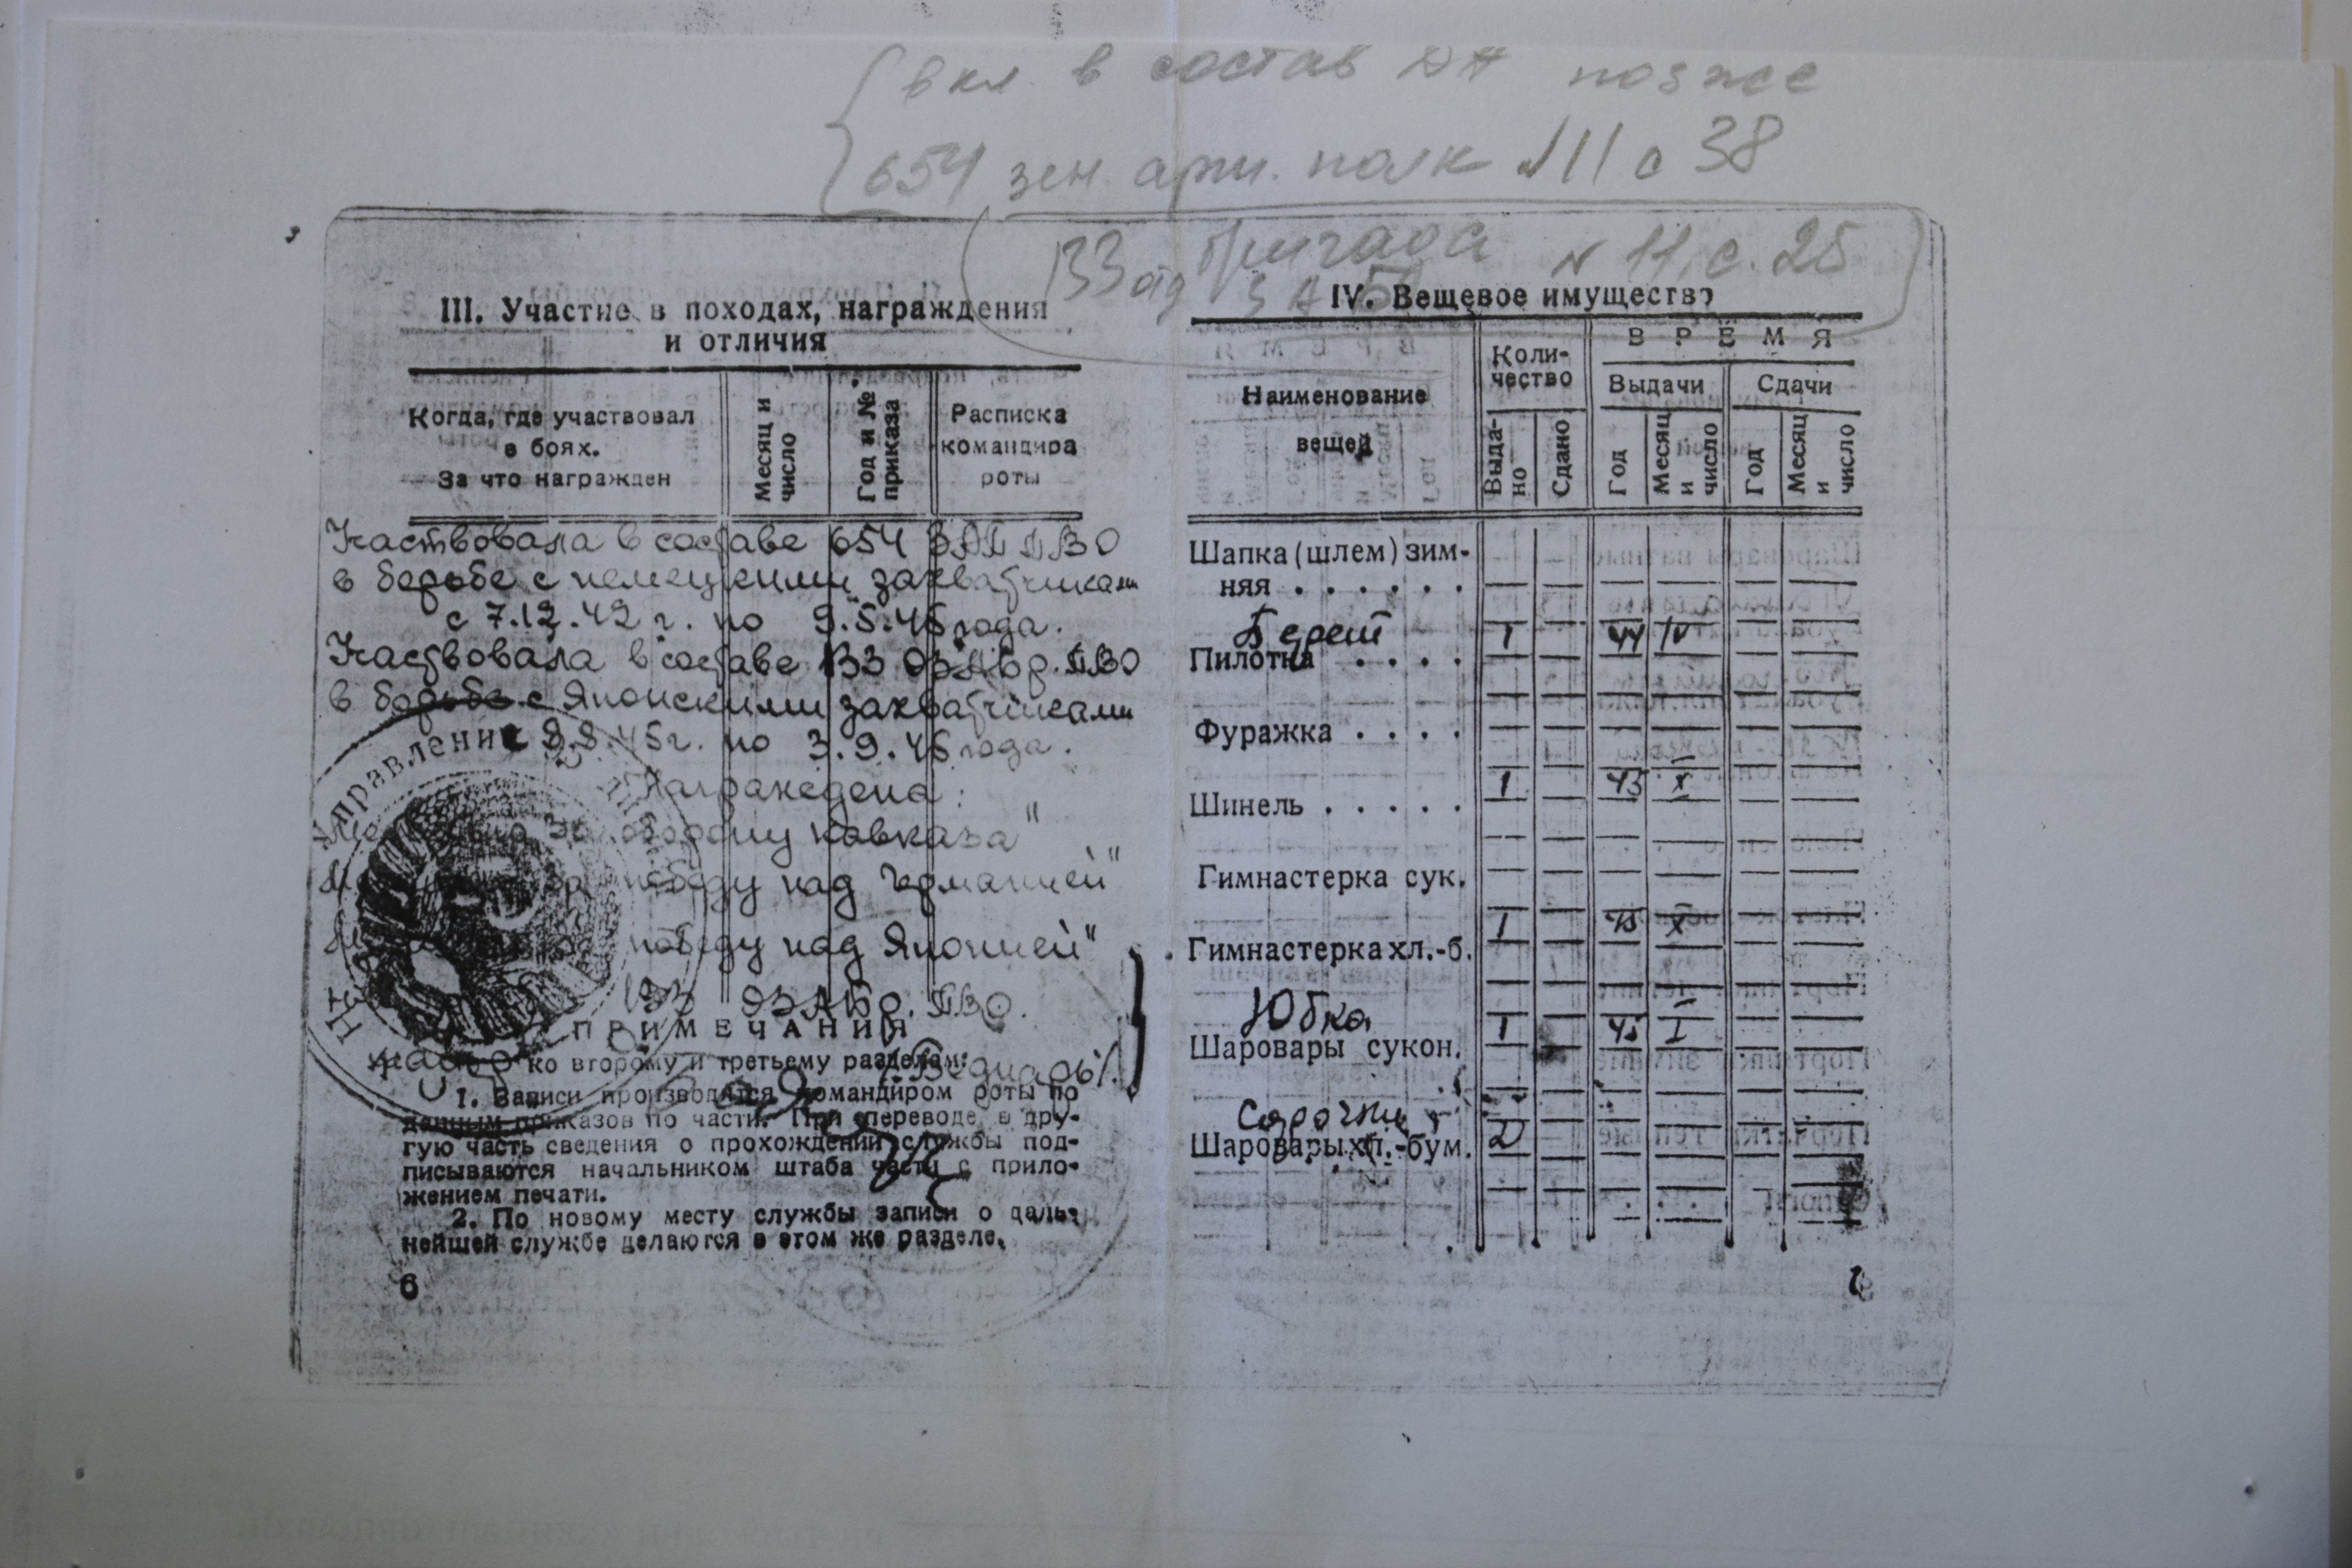 вкл в состав ДА позже
654 зен. арт. полк N 11 с 38
133 отд бригада N 11, с. 25
З А Б
III. Участие в походах, награждения
и отличия
Когда, где участвовал
в боях.
За что награжден
Месяц и
число
Год и №
приказа
Расписка
командира
роты
Участвовала в составе 654 ЗАП ПВО
в борьбе с немецкими захватчиками
с 7.12.42 г. по 9.5.45 года.
Участвовала в составе 133 ОЗАБр. ПВО
в борьбе с Японскими захватчиками
9.8.45 г. по 3.9.45 года.
Награждена:
За оборону Кавказа"
За победу над Германией"
победу над Японией"
133 ОЗАБр. ПВО.
Управление
ПРИМЕЧАНИЯ
ко второму и третьему разделам:
1. Записи производятся командиром роты по
данным приказов по части. При переводе в дру-
гую часть сведения о прохождении службы под-
писываются начальником штаба части с прило-
жением печати.
2. По новому месту службы записи о даль-
нейшей службе делаются в этом же разделе.
6
IV. Вещевое имущество
Наименование
вещей
Коли-
чество
ВРЕМЯ
Выдачи
Сдачи
Выда-
но
Сдано
Год
Месяц
и
число
Год
Месяц
и
число
Шапка (шлем) зим-
няя . . . . . .
Берет 1 44 IV
Пилотка . . . .
Фуражка . . . .
1 43 X
Шинель . . . . .
Гимнастерка сук.
1 45 X
Гимнастерка хл.-б.
Юбка 1 45 I
Шаровары сукон.
Сорочки 2
Шаровары хл.-бум.